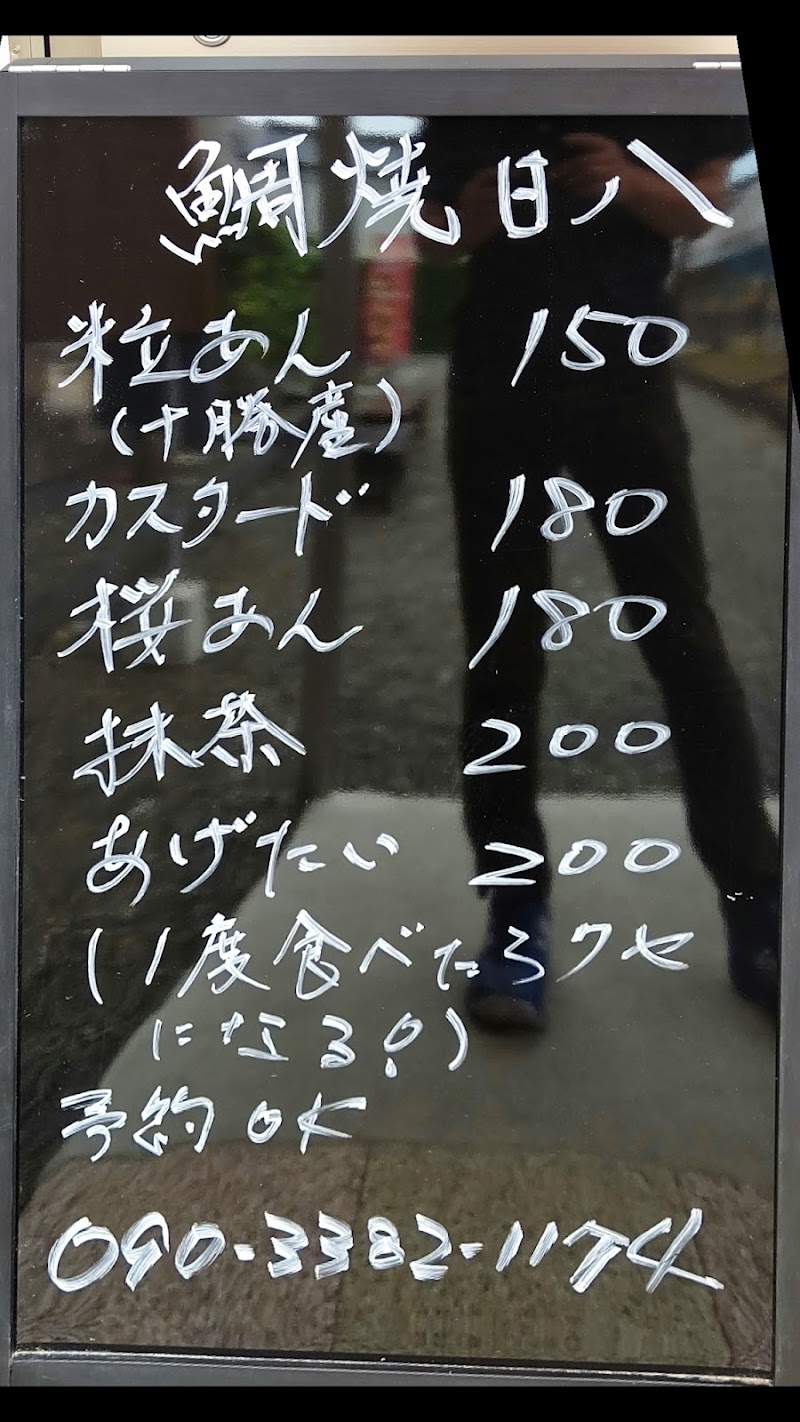 鯛焼 日ノ八
粒あん 150
(十勝産)
カスタード 180
桜あん 180
抹茶 200
あげたい 200
(1度食べたらクセ
になる!)
予約 OK
090-3382-1174